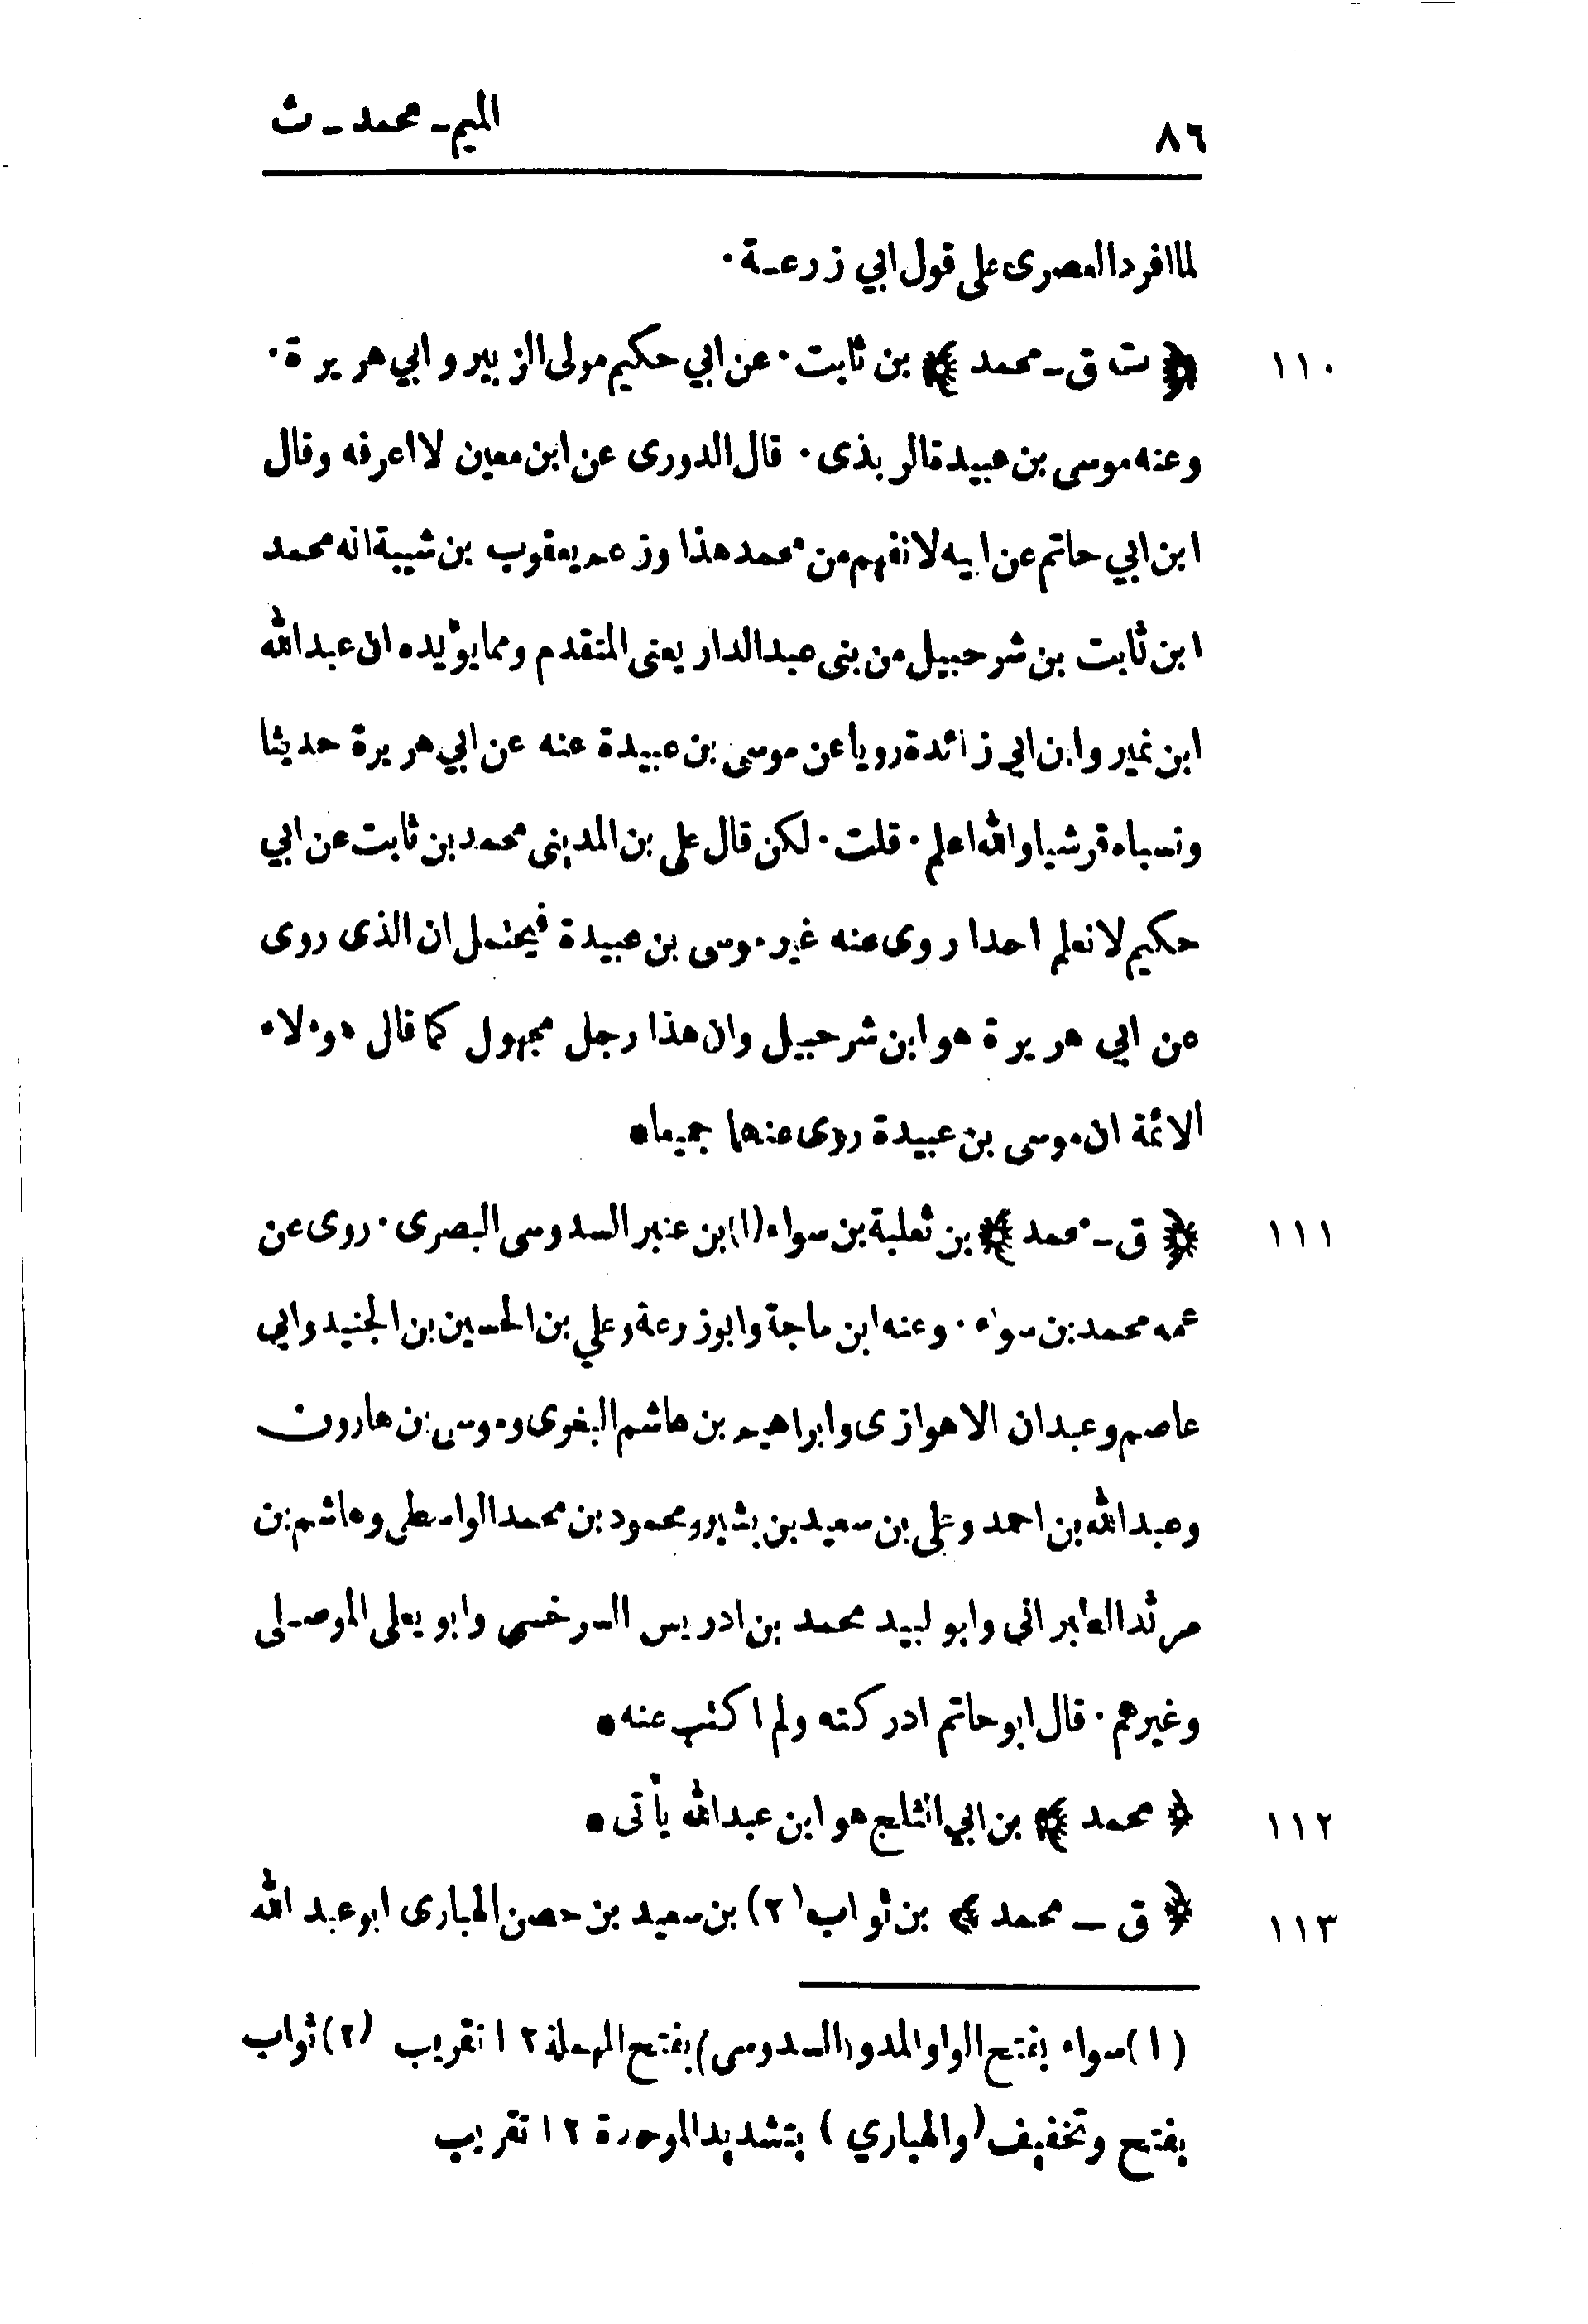 ٨٦
الميم ـ محمد ـ ث
لما افرد المصرى على قول ابي زرعة ۰
١١٠
﴿ ت ق ـ محمد ﴾ بن ثابت ۰ عن ابي حكيم مولى الزبير و ابي هريرة ۰
وعنه موسى بن عبيدة الربذى ۰ قال الدورى عن ابن معين لا اعرفه وقال
ابن ابي حاتم عن ابيه لا نفهم من محمد هذا وزعم يعقوب بن شيبة انه محمد
ابن ثابت بن شرحبيل من بنى عبد الدار يعنى المتقدم ومما يؤيده ان عبد الله
ابن نمير وابن ابي زائدة رويا عن موسى بن عبيدة عنه عن ابي هريرة حديثا
ونسباه قرشيا والله اعلم ۰ قلت ۰ لكن قال على بن المدينى محمد بن ثابت عن ابي
حكيم لا نعلم احدا روى عنه غير موسى بن عبيدة فيحتمل ان الذى روى
عن ابي هريرة هو ابن شرحبيل وان هذا رجل مجهول كما قال هؤلاء
الائمة ان موسى بن عبيدة روى عنهما جميعا *
١١١
﴿ ق ـ محمد ﴾ بن ثعلبة بن سواء (١) بن عنبر السدوسى البصرى ۰ روى عن
عمه محمد بن سواء ۰ وعنه ابن ماجة وابوزرعة وعلي بن الحسين بن الجنيد وابي
عاصم وعبدان الاهوازى وابراهيم بن هاشم البغوى وموسى بن هارون
وعبد الله بن احمد وعلى بن سعيد بن بشير ومحمود بن محمد الواسطى وهاشم بن
مرثد الطبراني وابو لبيد محمد بن ادريس السرخسي وابو يعلى الموصلى
وغيرهم ۰ قال ابو حاتم ادركته ولم اكتب عنه *
١١٢
﴿ محمد ﴾ بن ابي الثلج هو ابن عبد الله يأتى *
١١٣
﴿ ق ـ محمد ﴾ بن ثواب (٢) بن سعيد بن حصن الهبارى ابو عبد الله
(١) سواء بفتح الواو والمد و(السدوسى) بفتح المهملة ١٢ تقريب (٢) ثواب
بفتح وتخفيف (والهباري) بتشديد الموحدة ١٢ تقريب